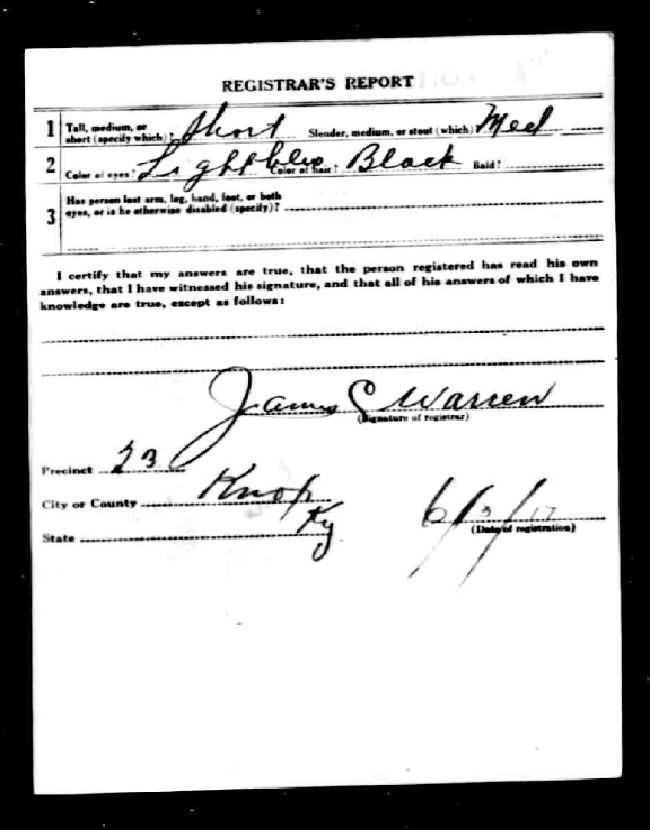 REGISTRAR'S REPORT
1 Tall, medium, or short (specify which)? Short Slender, medium, or stout (which) Med
2 Color of eyes? Light blue Color of hair? Black Bald?
3 Has person lost arm, leg, hand, foot, or both
eyes, or is he otherwise disabled (specify)?
I certify that my answers are true, that the person registered has read his own
answers, that I have witnessed his signature, and that all of his answers of which I have
knowledge are true, except as follows:
James C Warren
(Signature of registrar)
Precinct 23
City or County Knox
State Ky
(Date of registration)